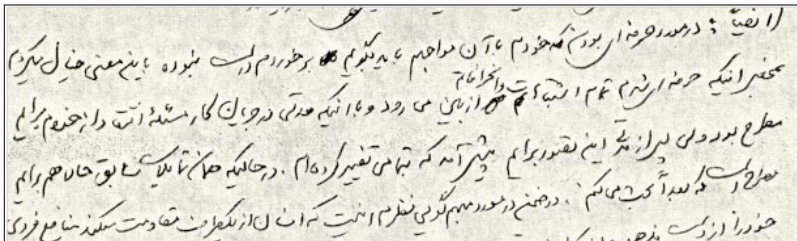 رابعاً: در مورد حرفه‌ای بودن که خودم با آن مواجهم باید بگویم برخوردم درست نبوده باین معنی خیال میکردم
بمحض اینکه حرفه‌ای شدم تمام اشتباهات و انحرافاتم از بین می رود و با اینکه مدتی در جریان کار مسئله انتقاد از خودم برایم
مطرح بود ولی پس از مدتی این تصور برایم پیش آمد که تمامی تغییر کرده‌ام. در حالیکه همان تمایلات سابق حالا هم برایم
مطرح است که بعداً بحث می‌کنم. در ضمن در مورد مبهم گویی نظرم اینست که انسان از یکطرف مقاومت میکند منافع فردی
خود را از دست بدهد